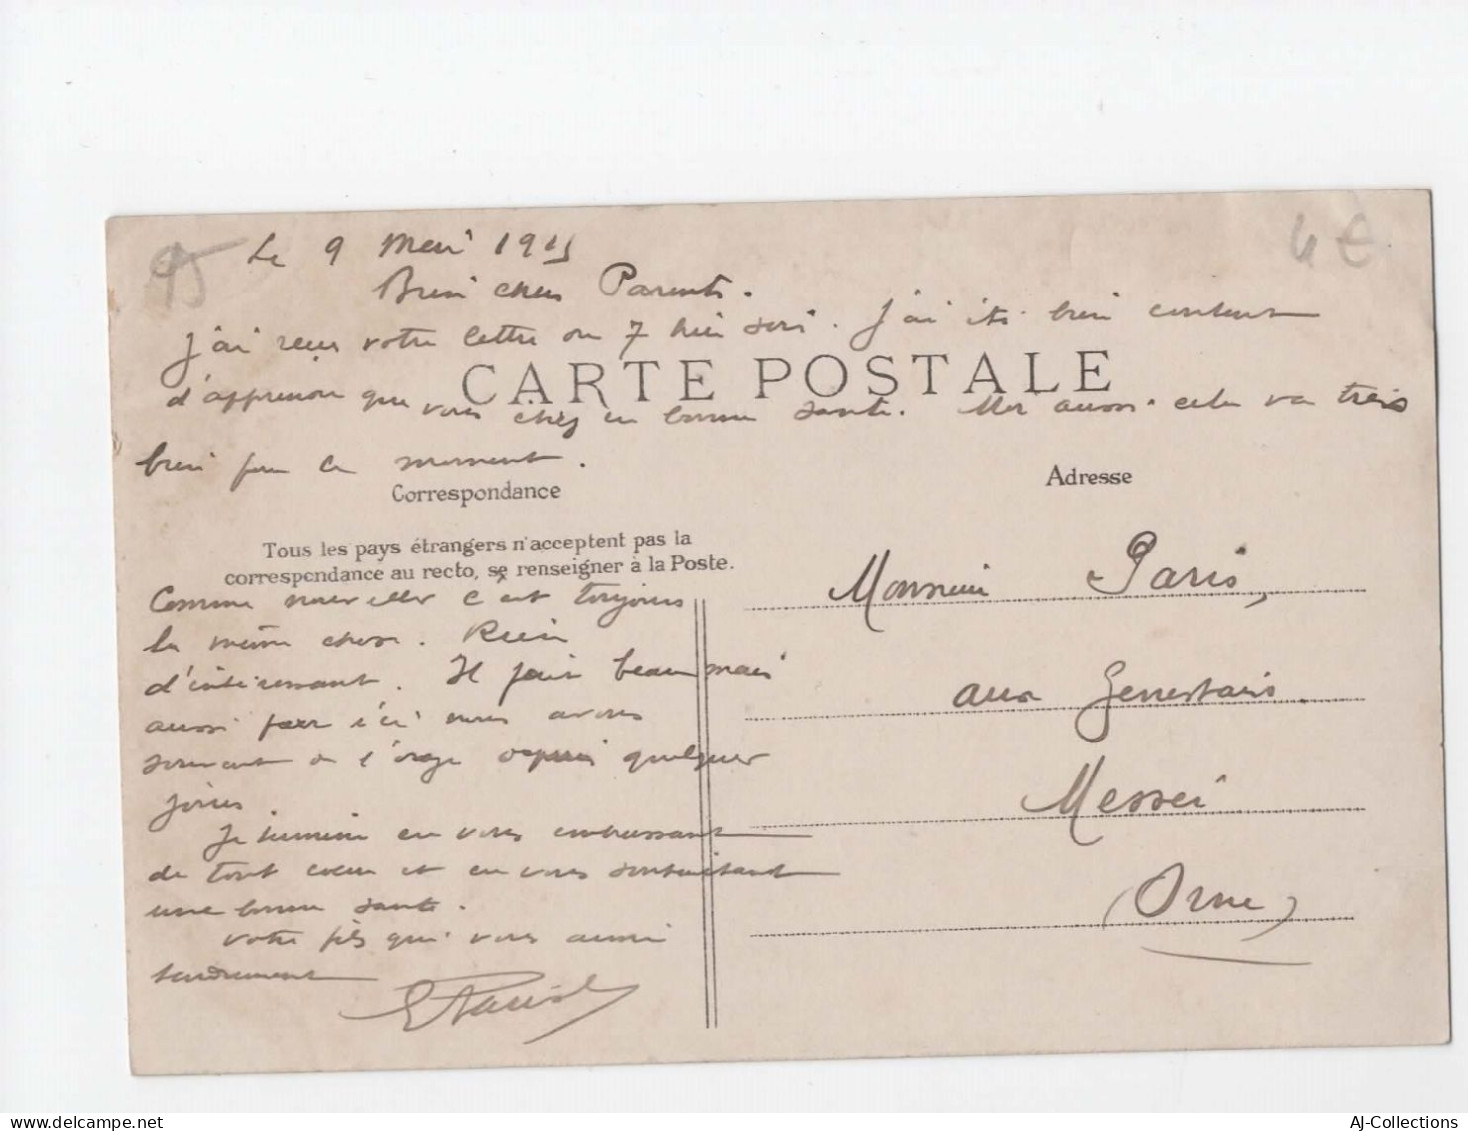 95
4 €
Le 9 Mai 1915
Bien chers Parents.
J'ai reçu votre lettre du 7 hier soir. J'ai été bien content
CARTE POSTALE
d'apprendre que vous étiez en bonne santé. Moi aussi cela va très
bien pour le moment.
Correspondance
Adresse
Tous les pays étrangers n'acceptent pas la
correspondance au recto, se renseigner à la Poste.
Comme nouvelles c'est toujours
la même chose. Rien
d'intéressant. Il fait beau mais
aussi par ici nous avons
souvent de l'orage depuis quelques
jours.
Je termine en vous embrassant
de tout coeur et en vous souhaitant
une bonne santé.
Votre fils qui vous aime
tendrement
Paris
Monsieur Paris,
aux
Messei
(Orne)
AJ-Collections